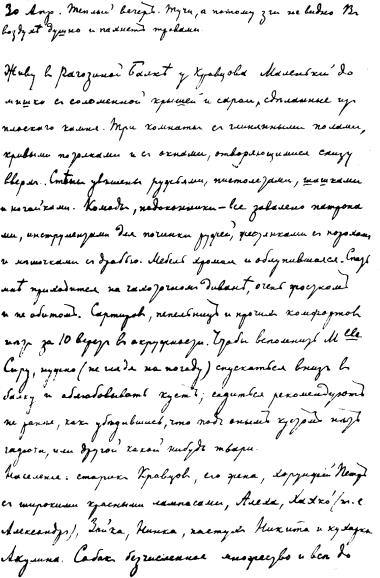 30 Апр. Теплый вечеръ. Тучи, а потому зги не видно. Въ
воздухѣ душно и пахнетъ травами.
Живу въ Рагозиной Балкѣ у Кравцова. Маленькій до-
мишко съ соломенной крышей и сараи, сдѣланные изъ
плоскаго камня. Три комнаты съ глиняными полами,
кривыми потолками и съ окнами, отворяющимися снизу
вверхъ. Стѣны увѣшены ружьями, пистолетами, шашками
и нагайками. Комоды, подоконники — все завалено патрона-
ми, инструментами для починки ружей, жестянками съ порохомъ
и мѣшочками съ дробью. Мебель хромая и облупившаяся. Спать
мнѣ приходится на чахоточномъ диванѣ, очень жесткомъ
и не обитомъ. Сортировъ, пепельницъ и прочихъ комфортовъ
нѣтъ за 10 верстъ въ окружности. Чтобы вспомнить Mlle
Сиру, нужно (не глядя на погоду) спускаться внизъ въ
балку и облюбовывать кустъ; садиться рекомендуютъ
не ранѣе, какъ убѣдившись, что подъ онымъ кустомъ нѣтъ
гадюки, или другой какой нибудь твари.
Населеніе: старикъ Кравцовъ, его жена, хорунжій Петръ
съ широкими красными лампасами, Алеха, Хахко (т. е.
Александръ), Зойка, Нинка, пастухъ Никита и кухарка
Акулина. Собакъ безчисленное множество и всѣ до